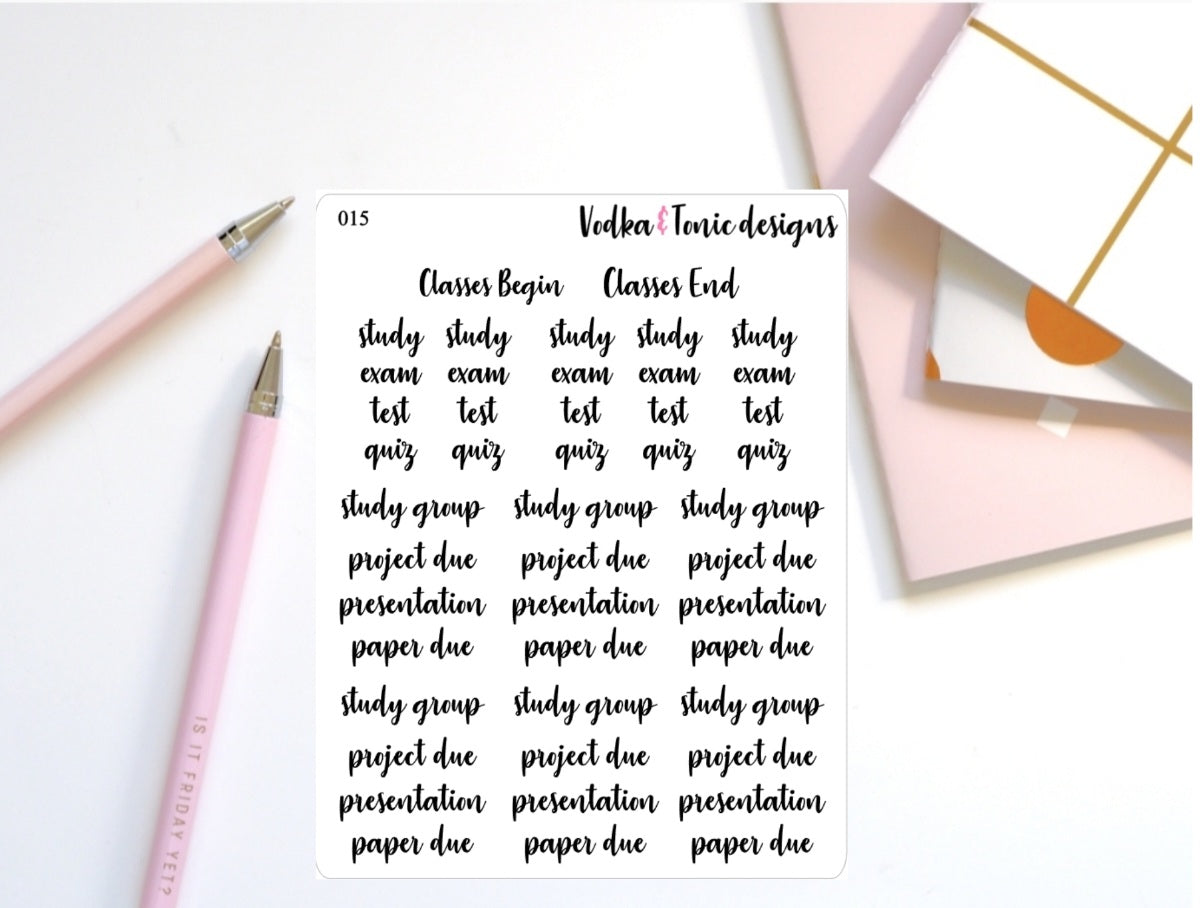 015
Vodka & Tonic designs
Classes Begin Classes End
study study study study study
exam exam exam exam exam
test test test test test
quiz quiz quiz quiz quiz
study group study group study group
project due project due project due
presentation presentation presentation
paper due paper due paper due
study group study group study group
project due project due project due
presentation presentation presentation
paper due paper due paper due
IS IT FRIDAY YET?